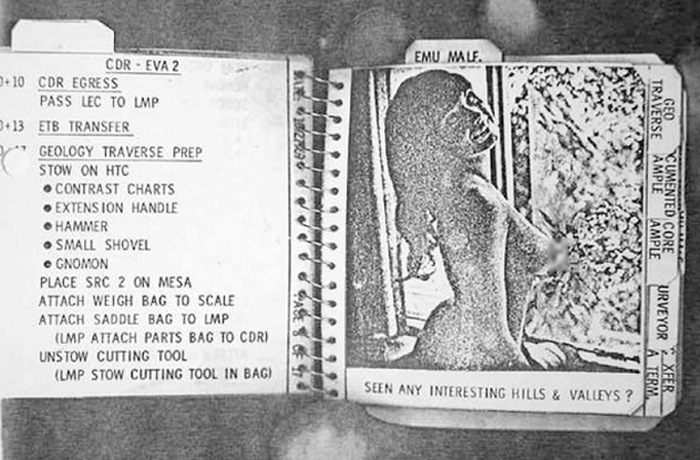 CDR - EVA 2
0+10 CDR EGRESS
PASS LEC TO LMP
0+13 ETB TRANSFER
GEOLOGY TRAVERSE PREP
STOW ON HTC
● CONTRAST CHARTS
● EXTENSION HANDLE
● HAMMER
● SMALL SHOVEL
● GNOMON
PLACE SRC 2 ON MESA
ATTACH WEIGH BAG TO SCALE
ATTACH SADDLE BAG TO LMP
(LMP ATTACH PARTS BAG TO CDR)
UNSTOW CUTTING TOOL
(LMP STOW CUTTING TOOL IN BAG)
EMU MALF.
SEEN ANY INTERESTING HILLS & VALLEYS ?
GEO
TRAVERSE
CUMENTED
AMPLE
CORE
AMPLE
URVEYOR
XFER
A TERM.